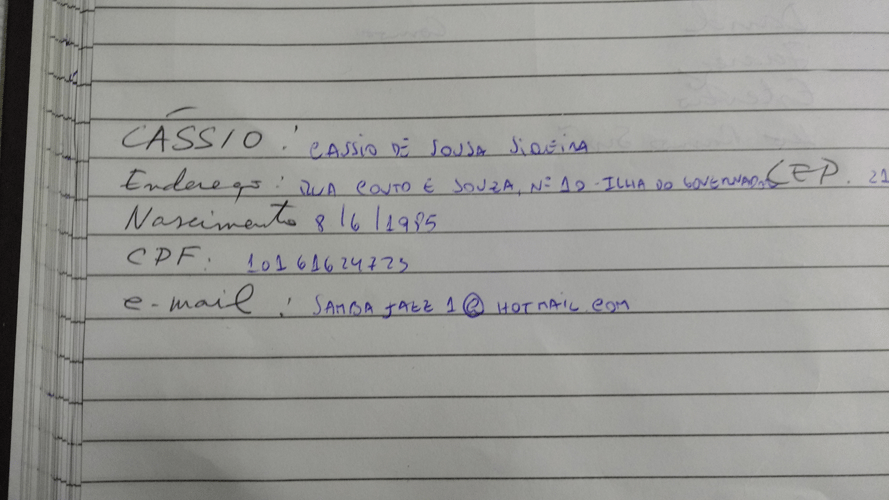 CÁSSIO: CASSIO DE SOUSA SIQEIRA
Endereço: RUA COUTO E SOUZA, Nº 10 - ILHA DO GOVERNADOR CEP. 21
Nascimento 8/6/1985
CPF: 10161624725
e-mail: SAMBA JAZZ 1@HOTMAIL.COM